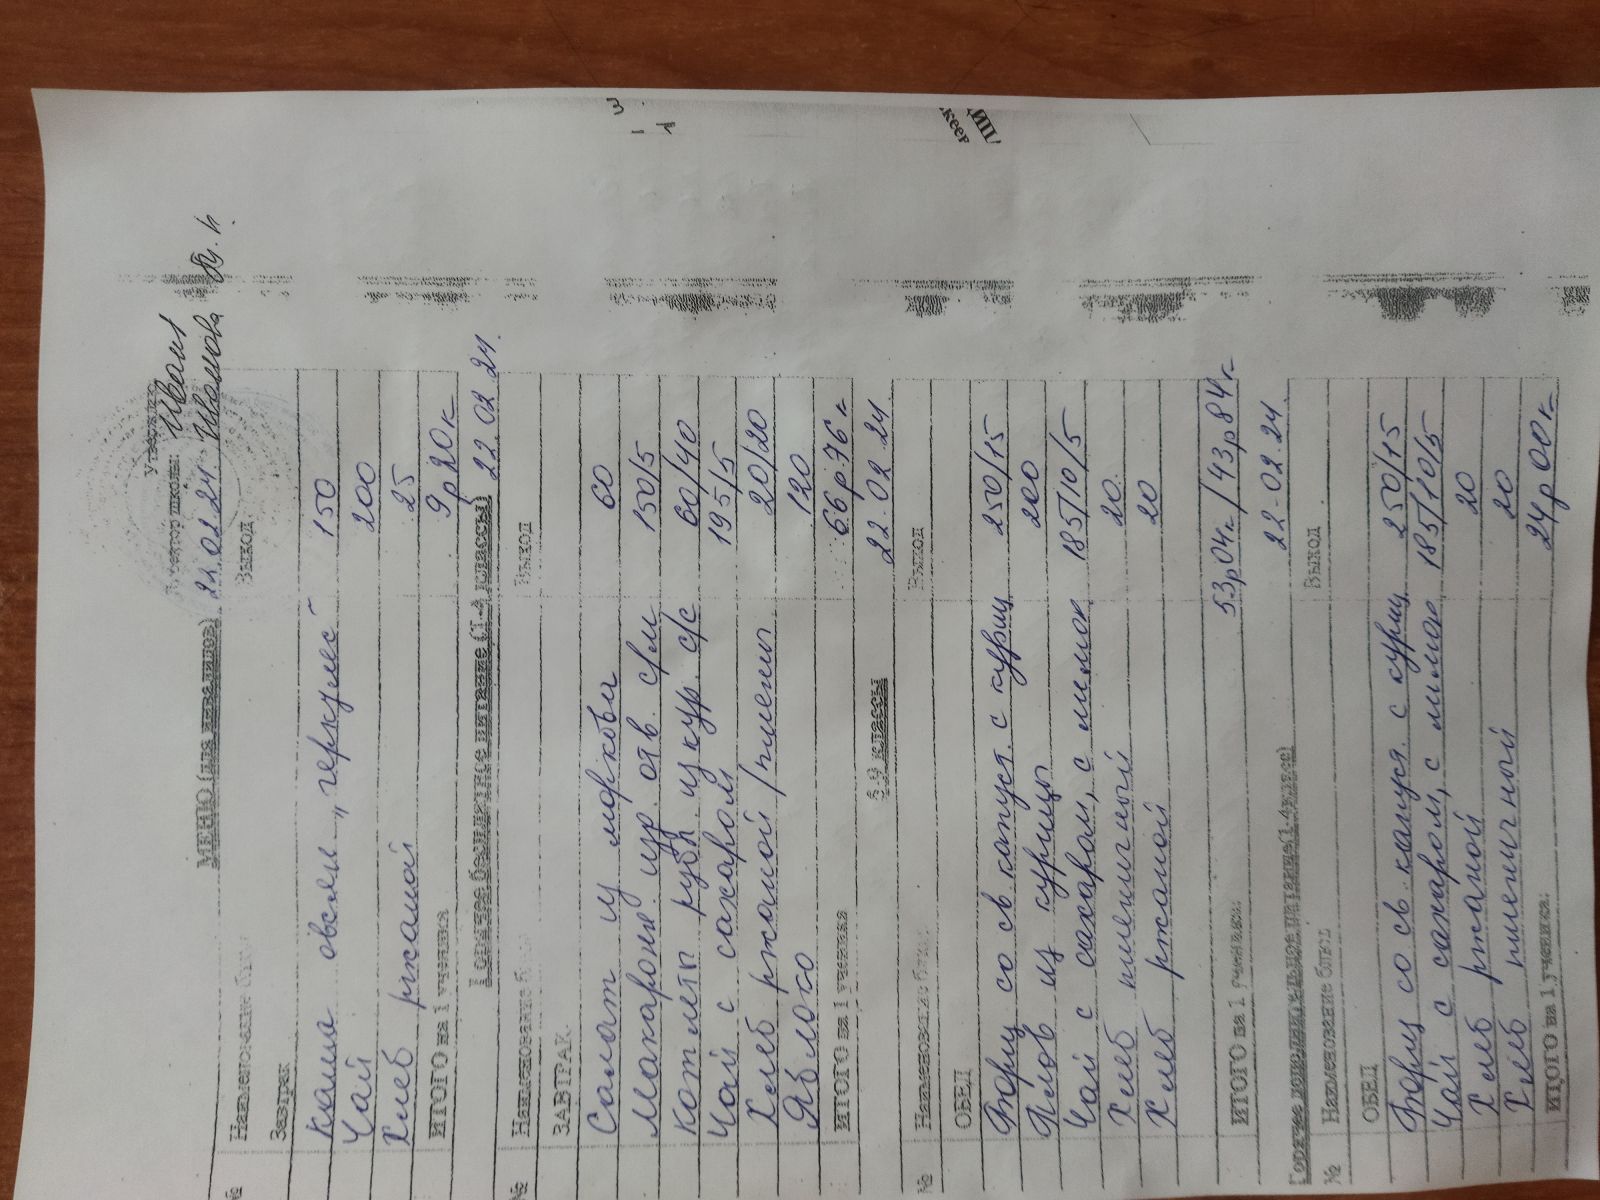 Утверждаю
Директор школы: Иван
МЕНЮ (для инвалидов) 22.02.24. Иванова
№ Наименование блюд Выход
Завтрак
Каша овсян „геркулес" 150
Чай 200
Хлеб ржаной 25
ИТОГО на 1 ученика 9р 20к
Горячее бесплатное питание (1-4 классы) 22.02.24.
№ Наименование блюд Выход
ЗАВТРАК
Салат из моркови 60
Макароны. изр. отв. с/м 150/5
Котлеты рубл. из кур. с/с 60/40
Чай с сахаром 195/5
Хлеб ржаной/пшены 20/20
Яблоко 120
ИТОГО на 1 ученика 66р 76к
5-9 классы 22.02.24
№ Наименование блюд Выход
ОБЕД
Борщ со св. капуст. с куриц 250/15
Плов из курицы 200
Чай с сахаром, с молок 185/10/5
Хлеб пшеничный 20.
Хлеб ржаной 20
ИТОГО на 1 ученика: 53р04к/43р84к
Горячее дополнительное питание(1-4класс) 22.02.24.
№ Наименование блюд Выход
ОБЕД
Борщ со св капуст. с куриц 250/15
Чай с сахаром, с молок 185/10/5
Хлеб ржаной 20
Хлеб пшеничный 20
ИТОГО на 1 ученика: 24р 00к